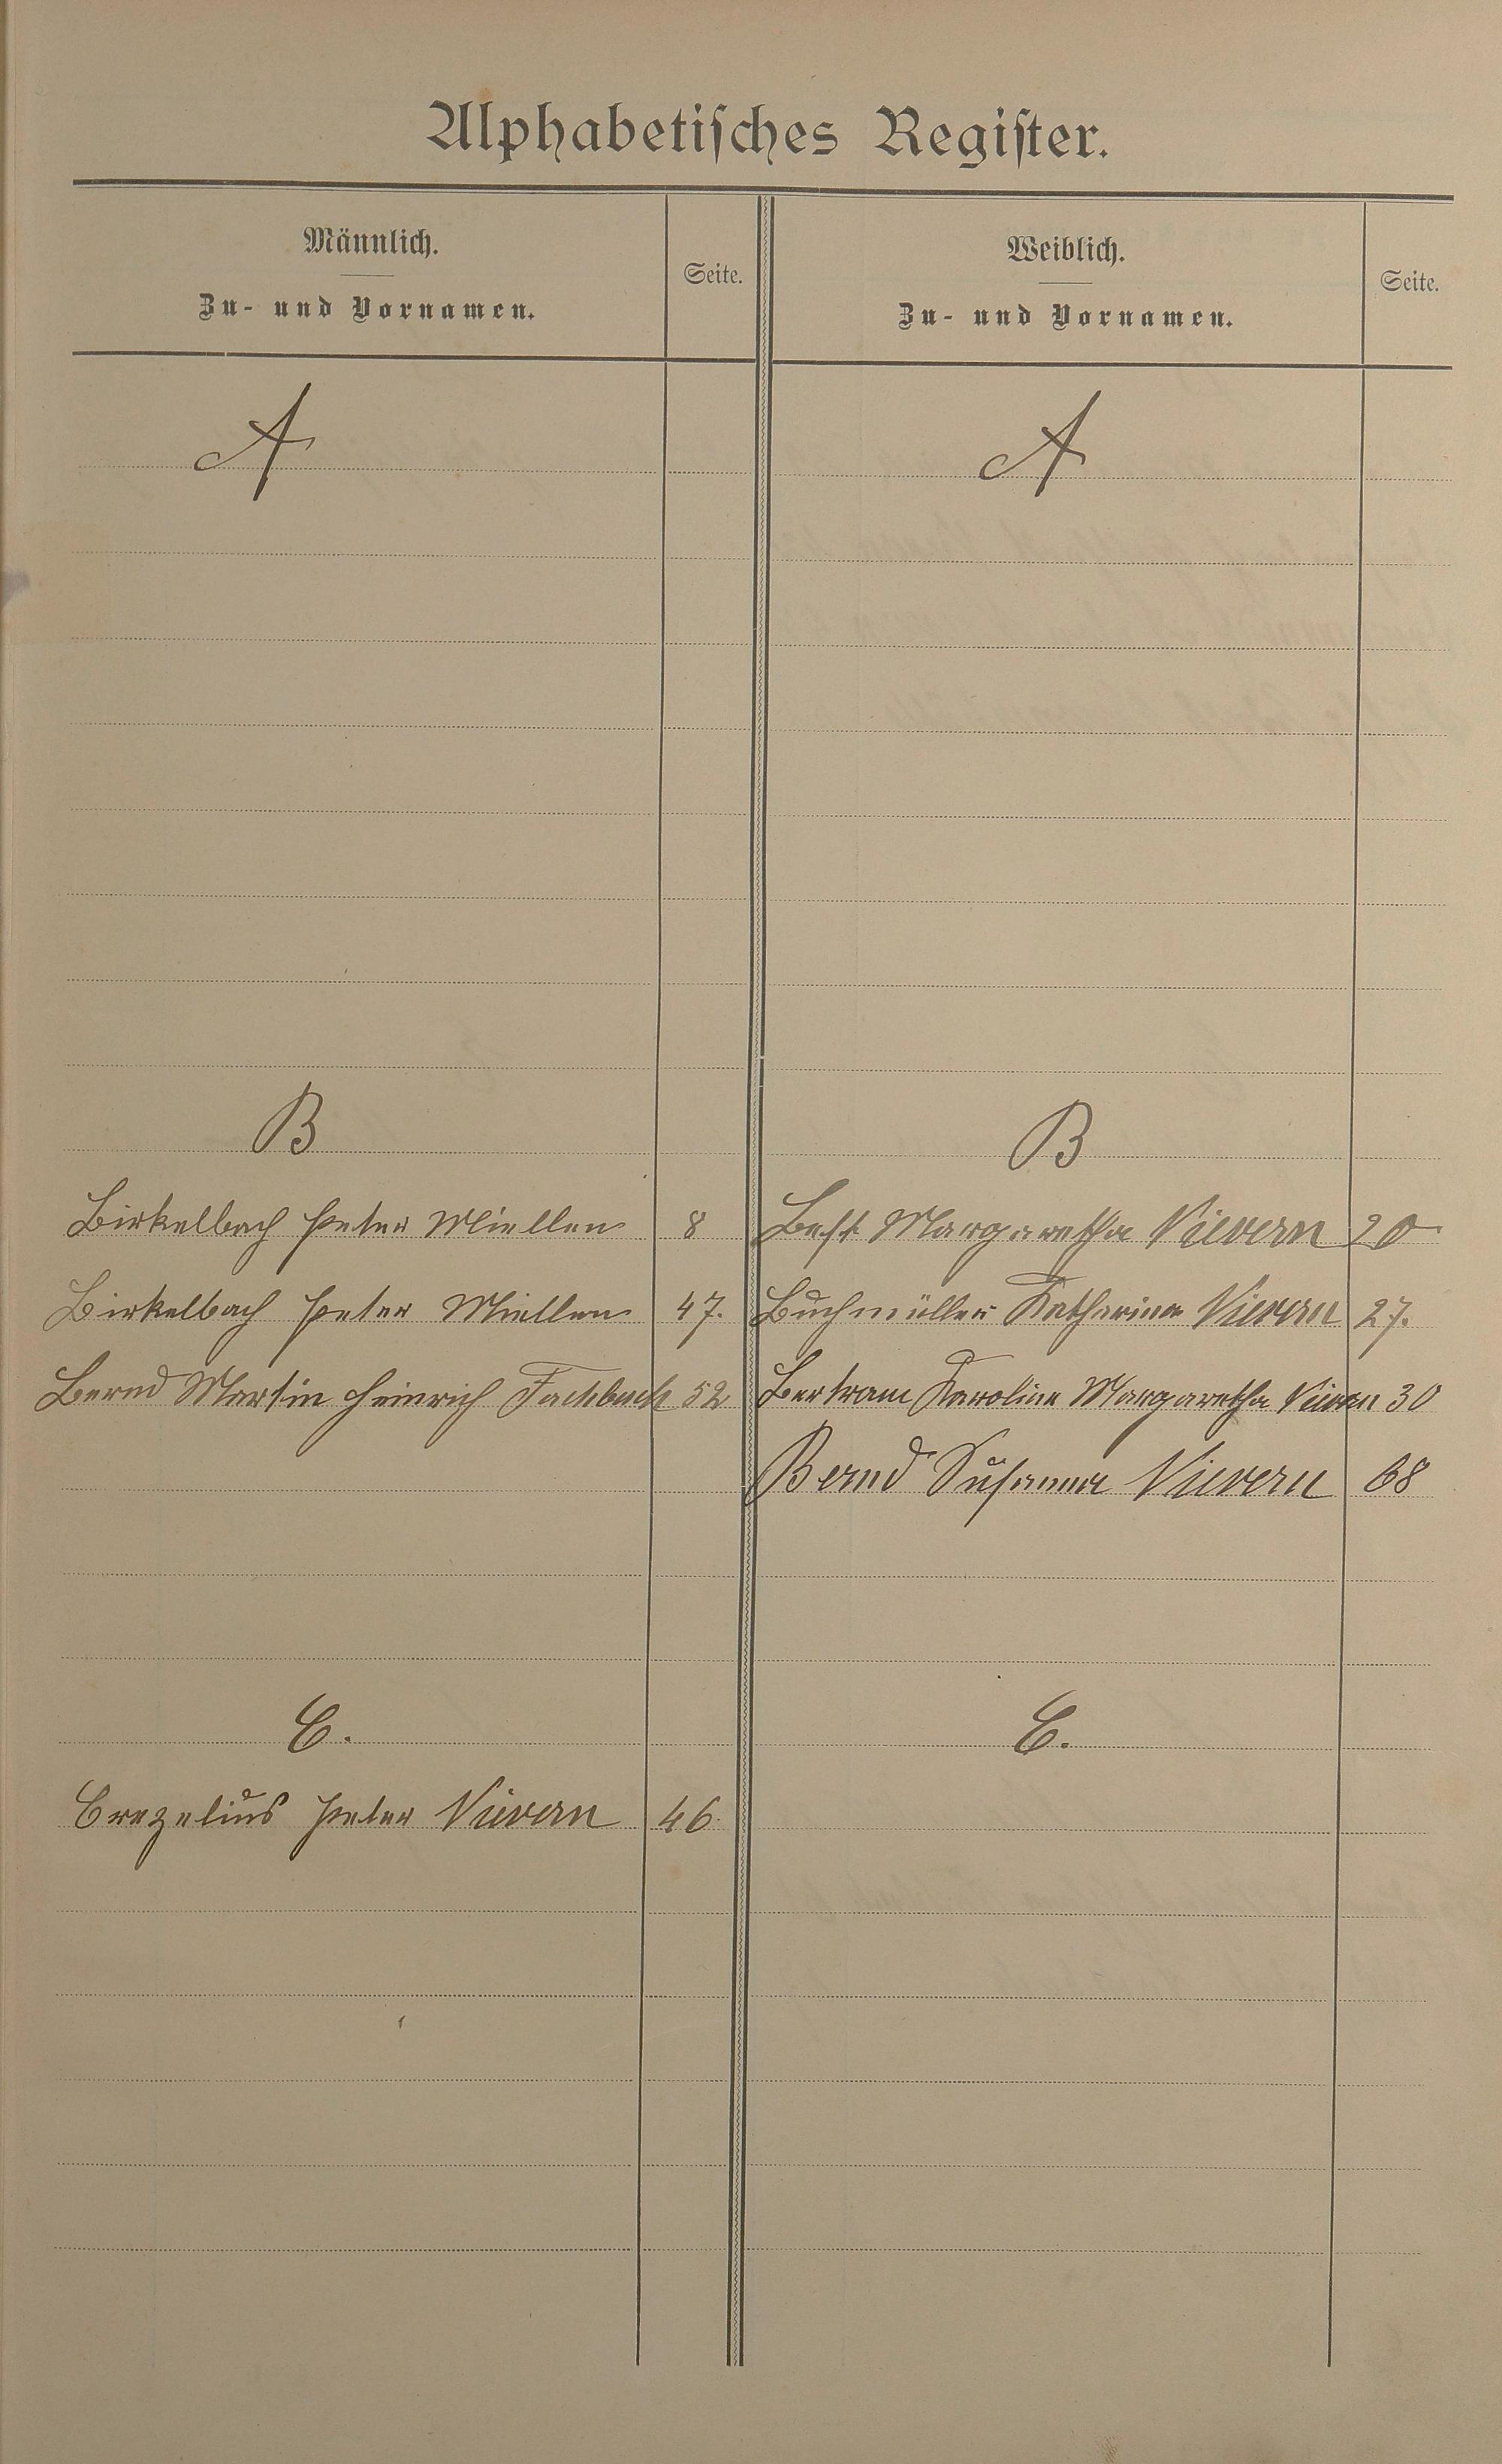 Alphabetisches Register.
Männlich.
Zu- und Vornamen.
Seite.
Weiblich.
Zu- und Vornamen.
Seite.
A
A
B
B
Birkelbach Peter Miellen 8
Best Margaretha Nievern 20
Birkelbach Peter Miellen 47.
Buchmüller Katharina Nievern 27.
Bernd Martin Heinrich Fachbach 52
Bertram Karoline Margaretha Nievern 30
Bernd Susanna Nievern 68
C.
C.
Crezelius Peter Nievern 46.